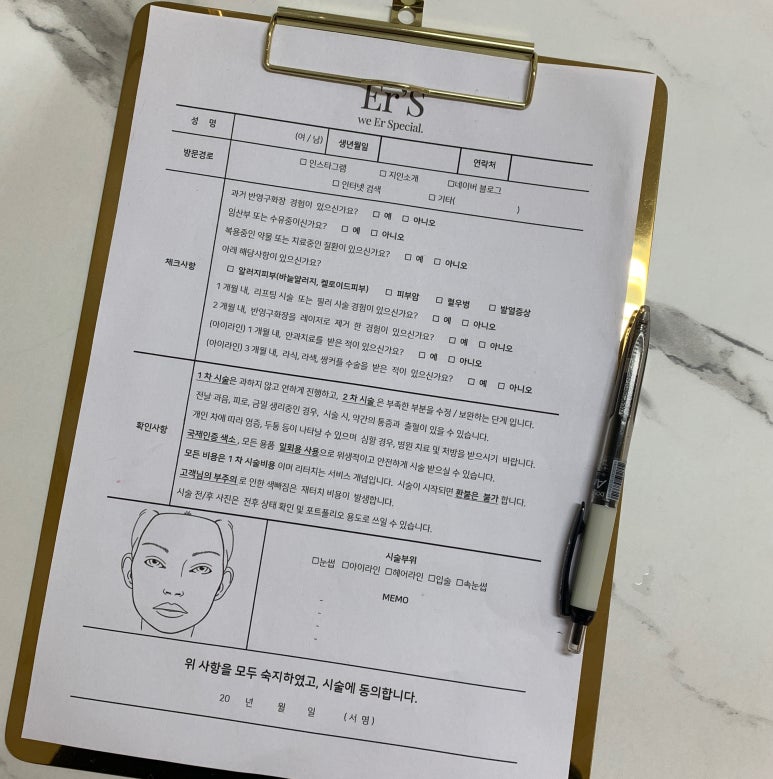 Er'S
we Er Special.
성 명 (여 / 남) 생년월일 연락처
방문경로 □ 인스타그램 □ 지인소개 □네이버 블로그
□ 인터넷 검색 □ 기타( )
과거 반영구화장 경험이 있으신가요? □ 예 □ 아니오
임산부 또는 수유중이신가요? □ 예 □ 아니오
복용중인 약물 또는 치료중인 질환이 있으신가요? □ 예 □ 아니오
아래 해당사항이 있으신가요?
체크사항
□ 알러지피부(바늘알러지, 켈로이드피부) □ 피부암 □ 혈우병 □ 발열증상
1 개월 내, 리프팅 시술 또는 필러 시술 경험이 있으신가요? □ 예 □ 아니오
2 개월 내, 반영구화장을 레이저로 제거 한 경험이 있으신가요? □ 예 □ 아니오
(아이라인) 1 개월 내, 안과치료를 받은 적이 있으신가요? □ 예 □ 아니오
(아이라인) 3 개월 내, 라식, 라색, 쌍커플 수술을 받은 적이 있으신가요? □ 예 □ 아니오
1 차 시술은 과하지 않고 연하게 진행하고, 2 차 시술 은 부족한 부분을 수정 / 보완하는 단계 입니다.
전날 과음, 피로, 금일 생리중인 경우, 시술 시, 약간의 통증과 출혈이 있을 수 있습니다.
개인 차에 따라 염증, 두통 등이 나타날 수 있으며 심할 경우, 병원 치료 및 처방을 받으시기 바랍니다.
확인사항
국제인증 색소, 모든 용품 일회용 사용으로 위생적이고 안전하게 시술 받으실 수 있습니다.
모든 비용은 1 차 시술비용 이며 리터치는 서비스 개념입니다. 시술이 시작되면 환불은 불가 합니다.
고객님의 부주의 로 인한 색빠짐은 재터치 비용이 발생합니다.
시술 전/후 사진은 전후 상태 확인 및 포트폴리오 용도로 쓰일 수 있습니다.
시술부위
□눈썹 □아이라인 □헤어라인 □입술 □속눈썹
MEMO
-
-
-
-
위 사항을 모두 숙지하였고, 시술에 동의합니다.
20 년 월 일 (서 명)